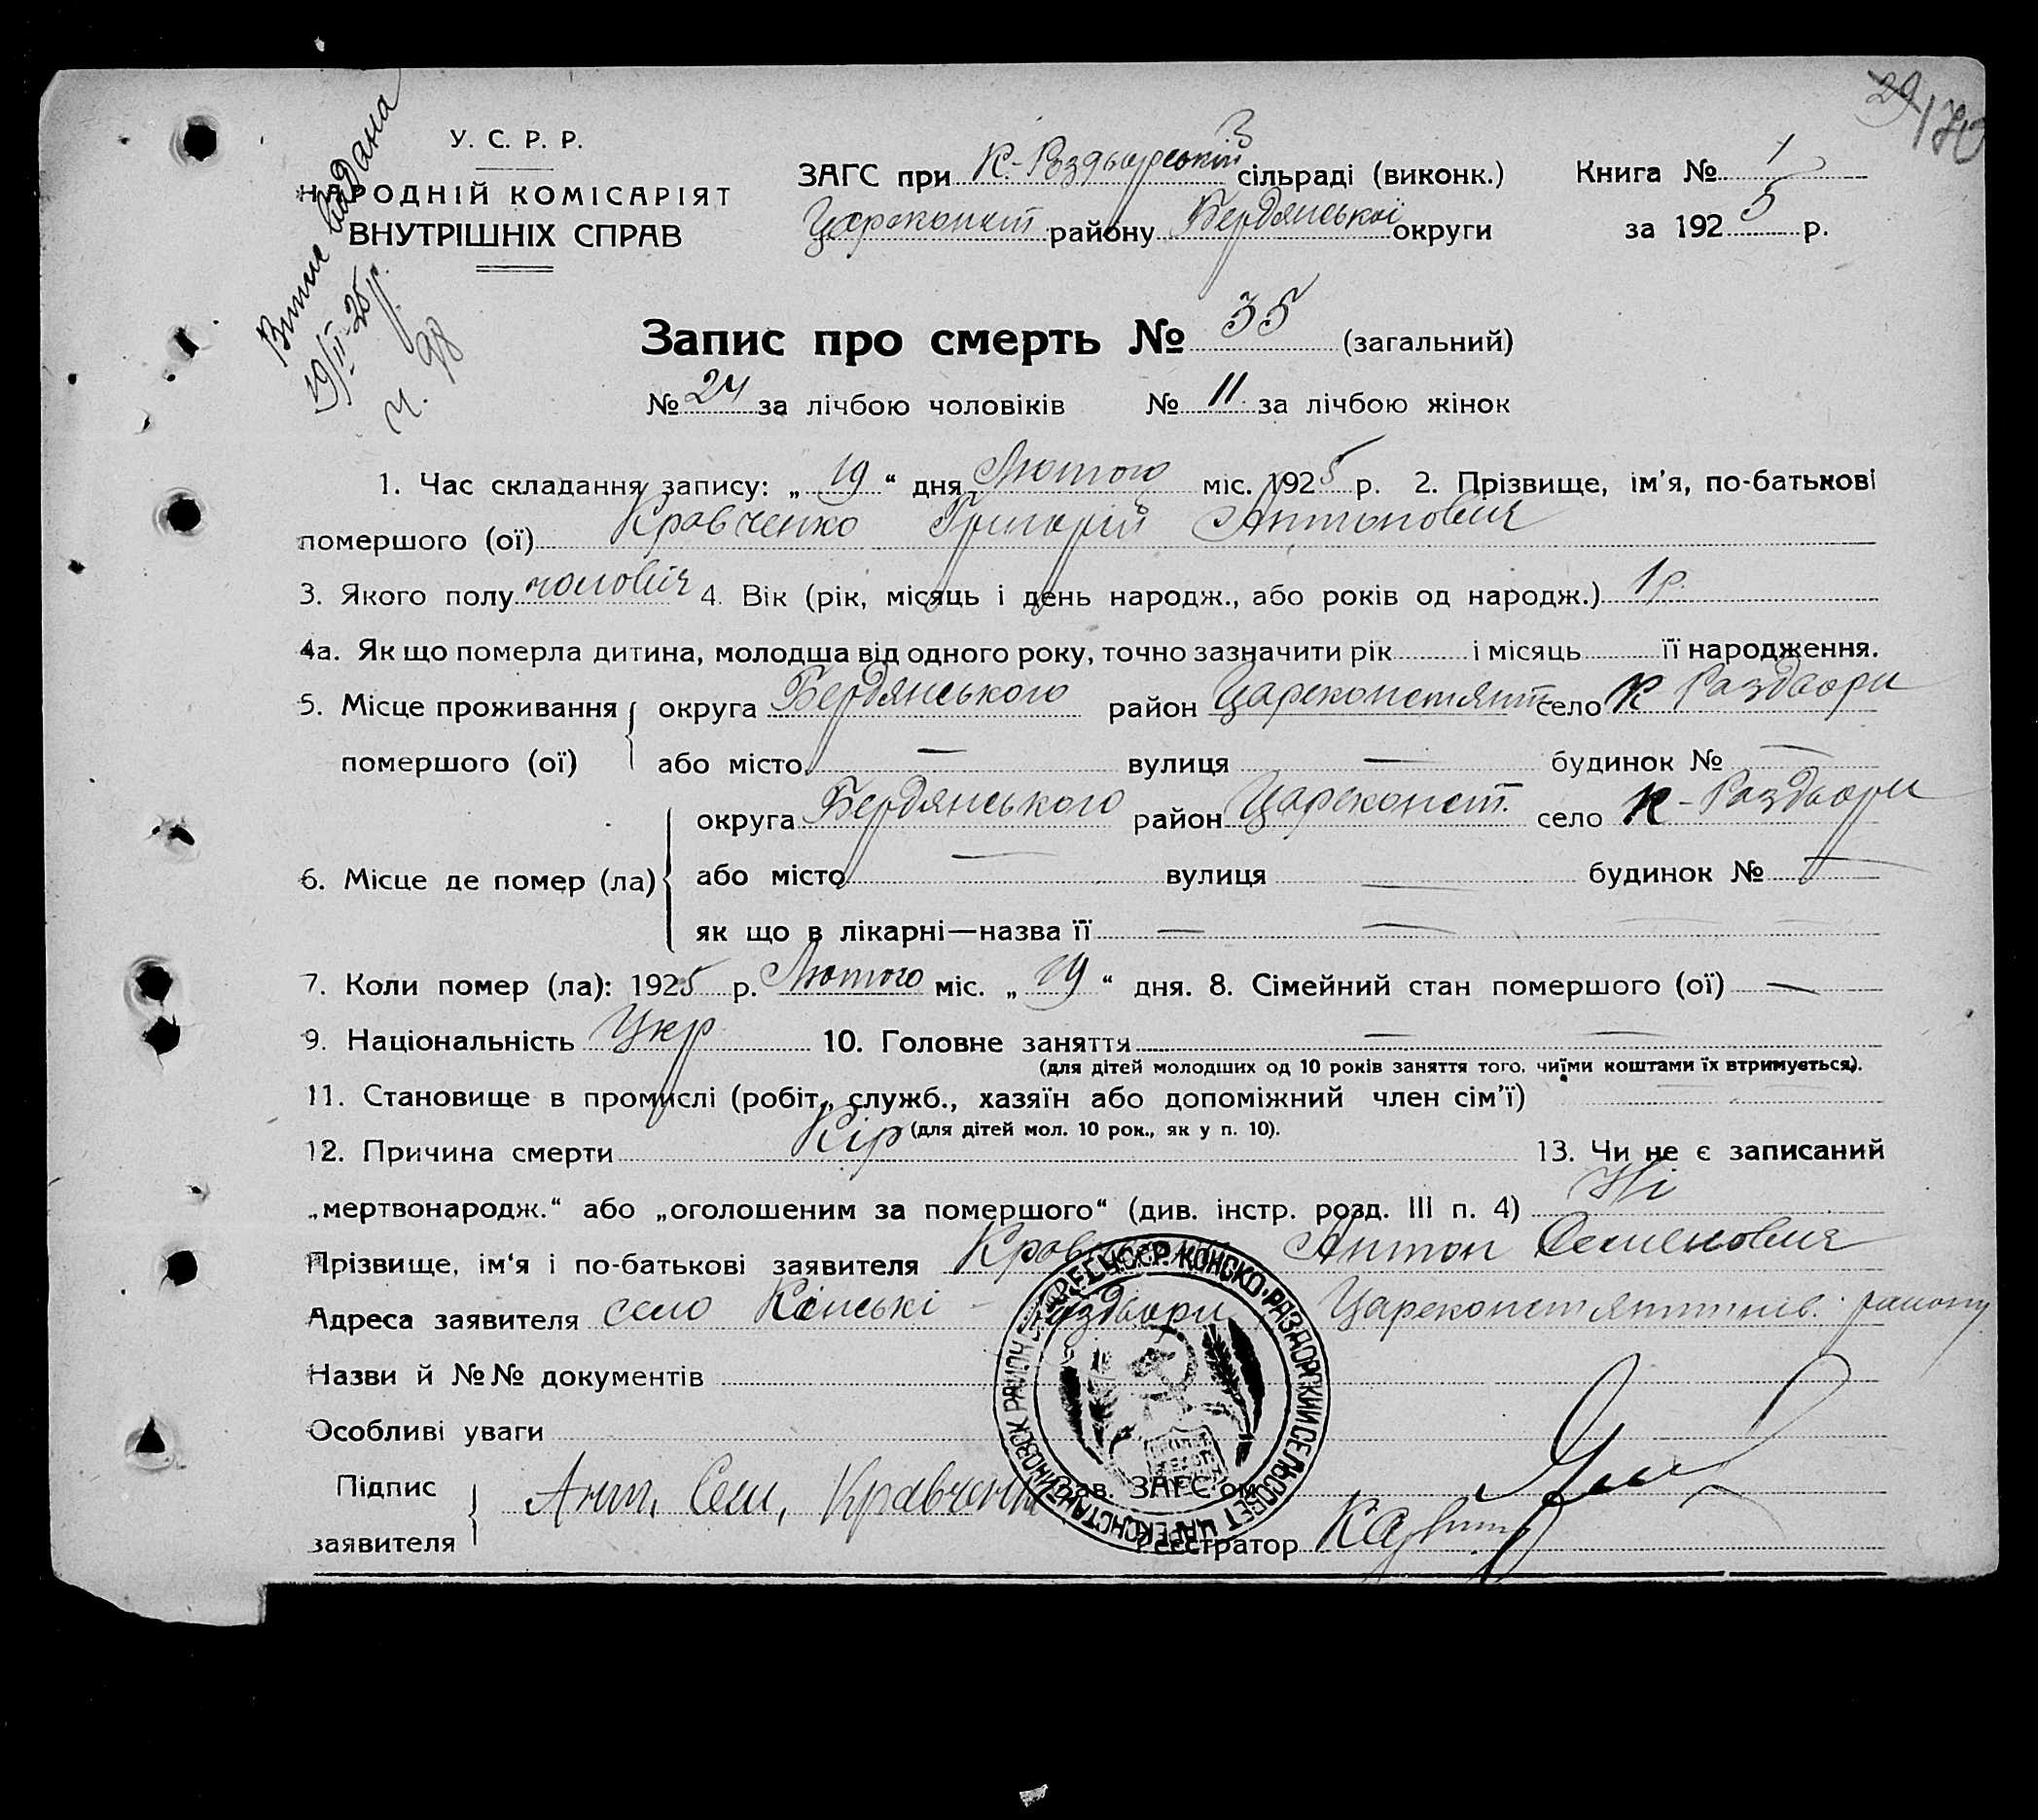 29/70
Випис видана
19/II-25 р.
ч. 98
У. С. Р. Р.
НАРОДНІЙ КОМІСАРІЯТ
ВНУТРІШНІХ СПРАВ
ЗАГС при К-Роздорській сільраді (виконк.) Книга № 1
Цареконст. району Бердянської округи за 1925 р.
Запис про смерть № 35 (загальний)
№ 24 за лічбою чоловіків № 11 за лічбою жінок
1. Час складання запису: „19“ дня Лютого міс. 1925 р. 2. Прізвище, ім'я, по-батькові
помершого (ої) Кравченко Григорій Антонович
3. Якого полу чоловіч 4. Вік (рік, місяць і день народж., або років од народж.) 1 р.
4а. Як що померла дитина, молодша від одного року, точно зазначити рік і місяць її народження.
5. Місце проживання округа Бердянського район Цареконстянт село К Раздори
помершого (ої) або місто — вулиця — будинок № —
округа Бердянського район Цареконст. село К-Раздори
6. Місце де помер (ла) або місто — вулиця — будинок № —
як що в лікарні—назва її — — — —
7. Коли помер (ла): 1925 р. Лютого міс. „19“ дня. 8. Сімейний стан помершого (ої) —
9. Національність Укр 10. Головне заняття — —
(для дітей молодших од 10 років заняття того, чиїми коштами їх втримується).
11. Становище в промислі (робіт., служб., хазяїн або допоміжний член сім'ї) — —
(для дітей мол. 10 рок., як у п. 10).
12. Причина смерти Кір 13. Чи не є записаний
„мертвонародж.“ або „оголошеним за помершого“ (див. інстр. розд. III п. 4) Ні
Прізвище, ім'я і по-батькові заявителя Крав Антон Семенович
Адреса заявителя село Кінські - Роздори, Цареконстянтинів. району
Назви й №№ документів
Особливі уваги
Підпис
заявителя Ант. Сем. Кравченко
Зав. ЗАГС'ом
Реєстратор
УССР. КОНСКО-РАЗДОРСКИЙ СЕЛЬСОВЕТ ЦАРЕКОНСТАНТИНОВСК РАЙОН